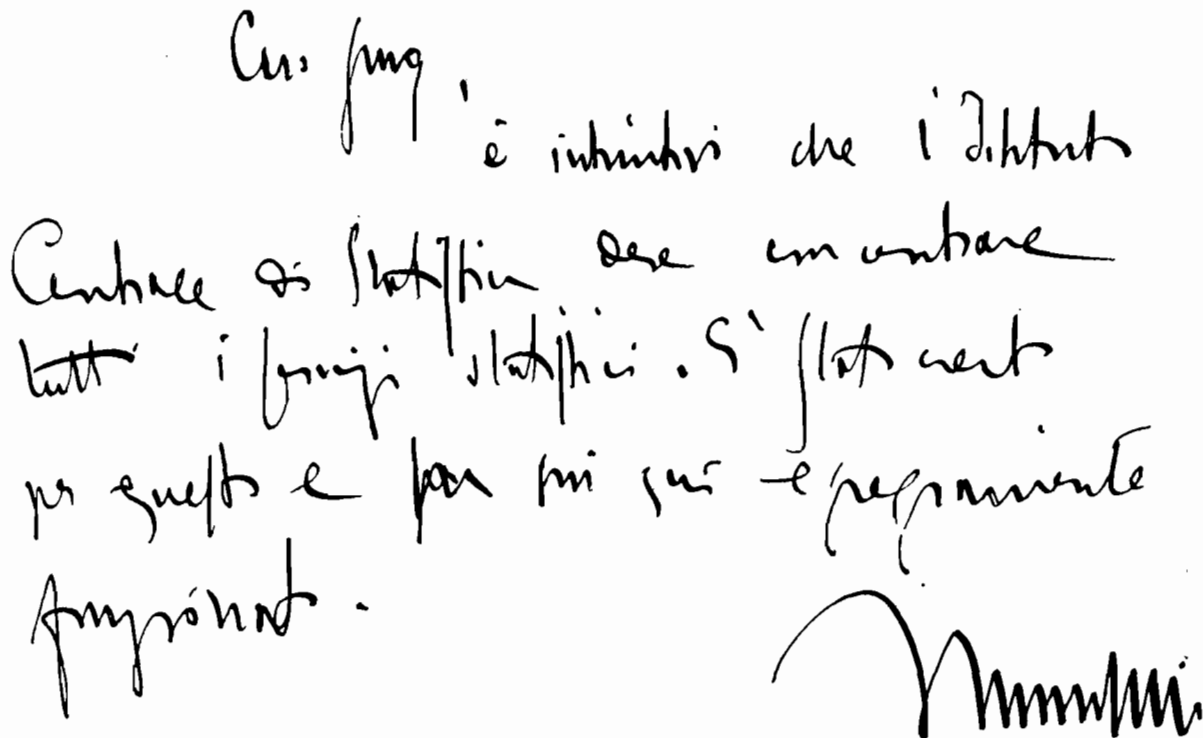 Caro Jung,
è intuitivo che l'Istituto
Centrale di Statistica deve concentrare
tutti i servizi statistici. È stato creato
per questo e fin qui egregiamente
funzionato.
Mussolini